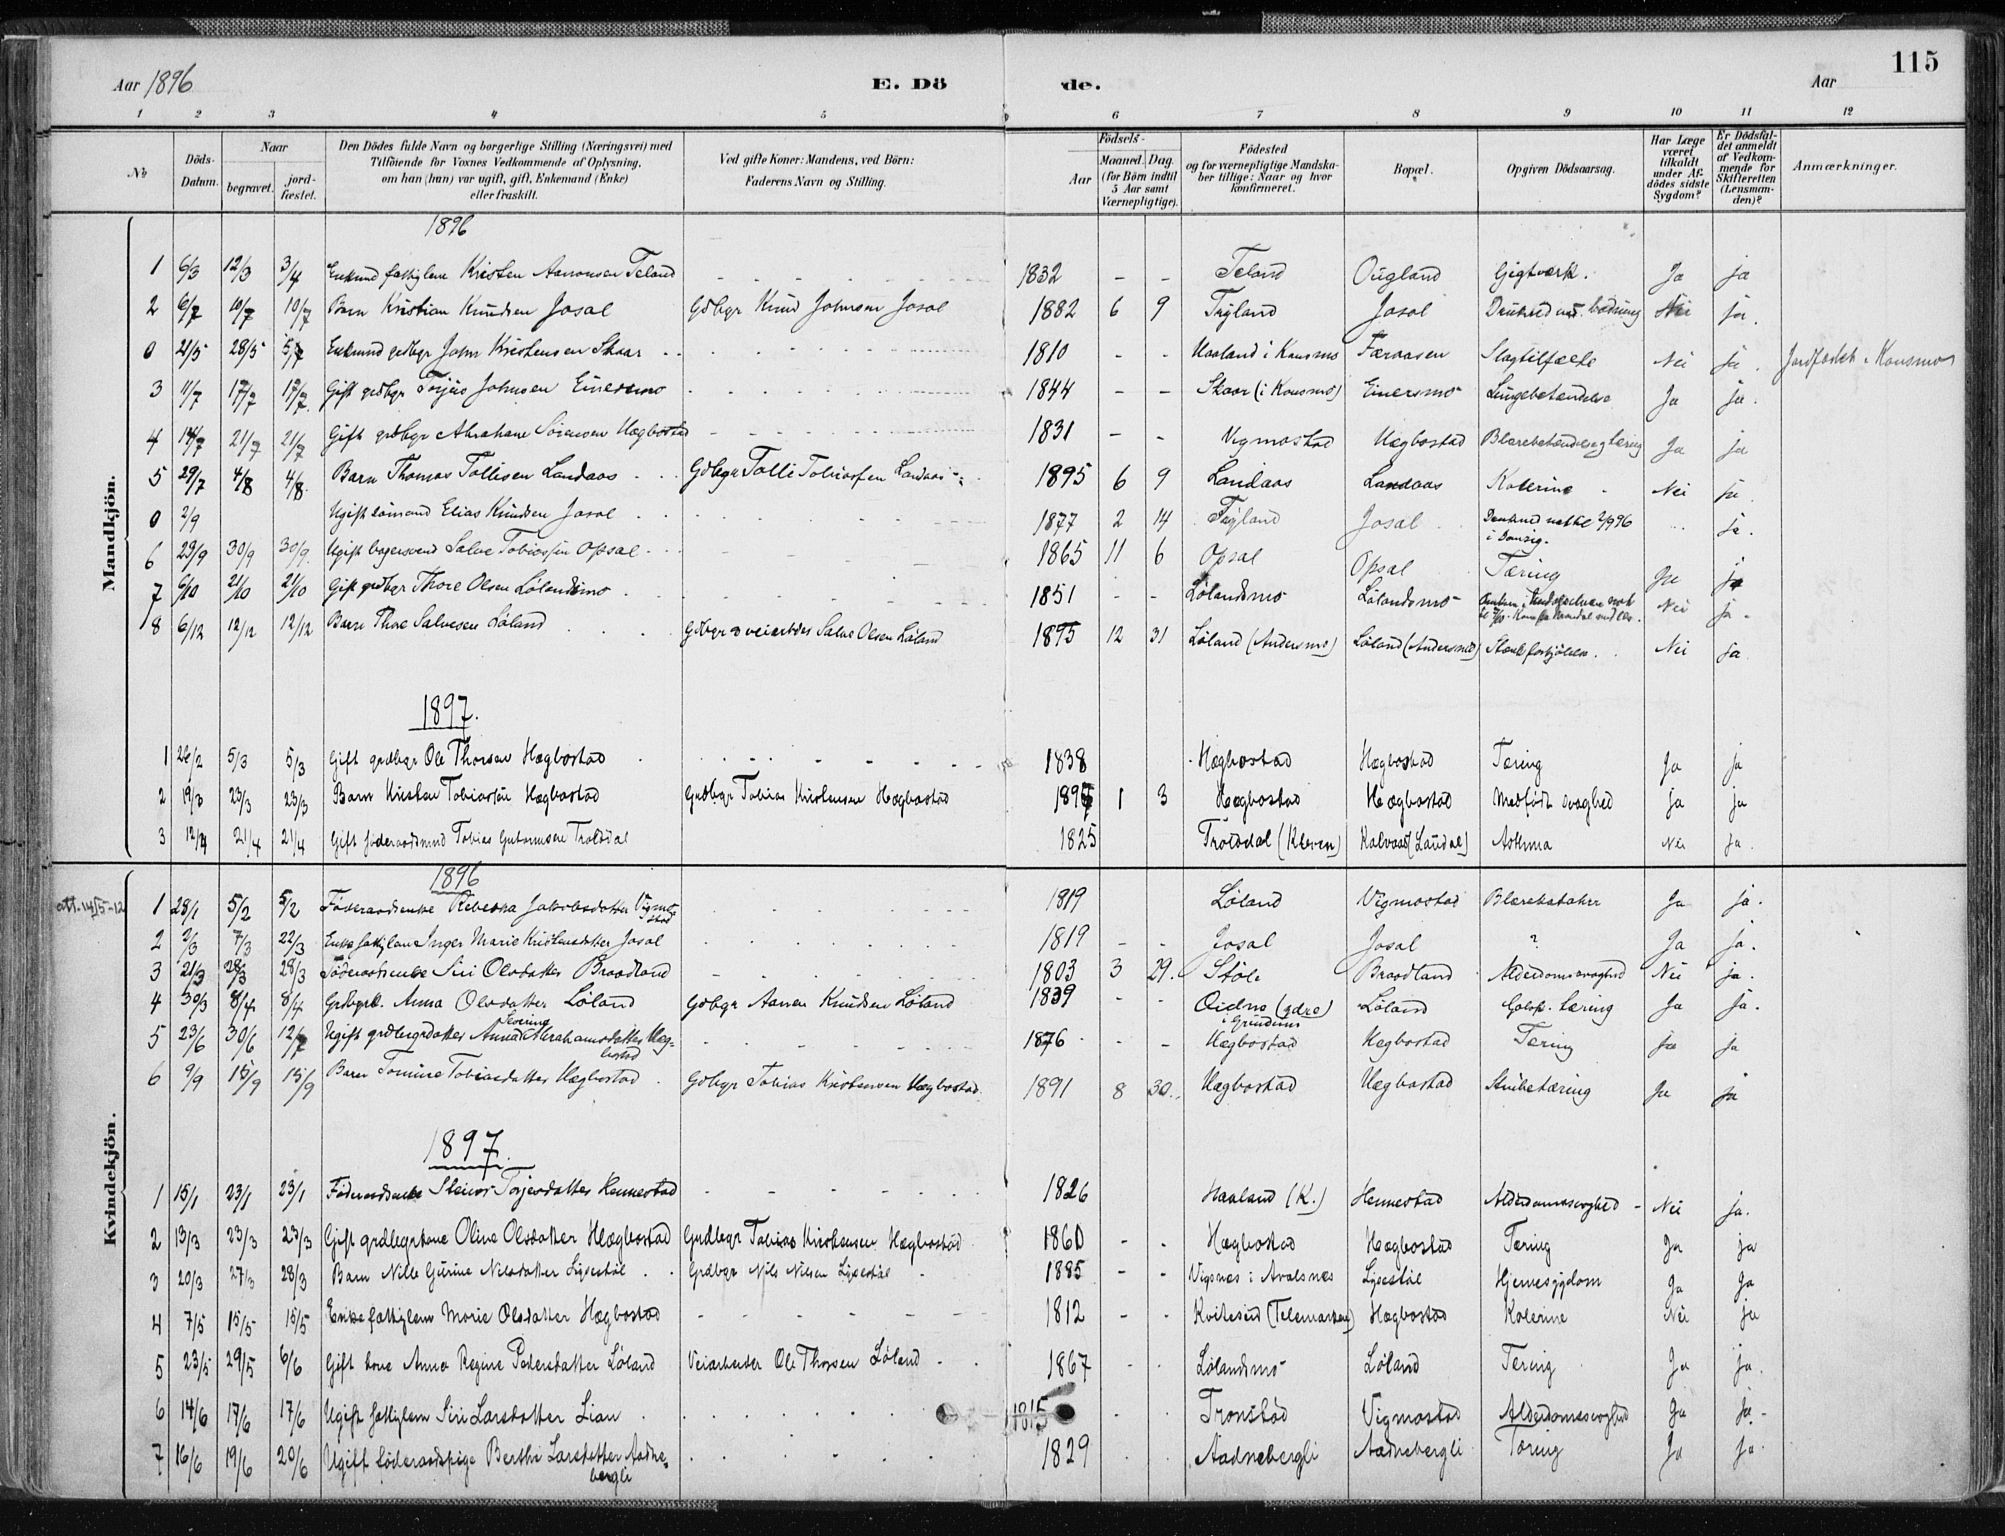 115
Aar 1896 E. Dö de. Aar
1 2 3 4 5 6 7 8 9 10 11 12
No Döds-Datum. Naar begravet. jord-fæstet. Den Dödes fulde Navn og borgerlige Stilling (Næringsvei) med Tilföiende for Voxnes Vedkommende af Oplysning, om han (hun) var ugift, gift, Enkemand (Enke) eller fraskilt. Ved gifte Koner: Mandens, ved Börn: Faderens Navn og Stilling. Födsels- Aar Maaned. Dag. (for Börn indtil 5 Aar samt Værnepligtige). Födested og for værnepligtige Mandskaber tillige: Naar og hvor konfirmeret. Bopæl. Opgiven Dödsaarsag. Har Læge været tilkaldt under Afdödes sidste Sygdom? Er Dödsfaldet anmeldt af Vedkommende for Skifteretten (Lensmanden)? Anmærkninger.
Mandkjön.
1896
1 6/3 12/3 3/4 Enkmd fattiglem Kristen Aanonsen Teland 1832 - - Teland Ougland Gigtværk. Ja ja
2 6/7 10/7 10/7 Barn Kristian Knudsen Josal Gdbgr Knud Johnsen Josal 1882 6 9 Tryland Josal Druknet ved badning Nei ja.
0 21/5 28/5 5/7 Enkmd grdbgr John Kristensen Skaar 1810 - - Haaland i Konsmo Færaasen Slagtilfælde Nei ja. Jordfæstet i Konsmo
3 11/7 17/7 17/7 Gift grdbgr Torjus Johnsen Einersmo 1844 - - Skaar (i Konsmo) Einersmo Lungebetændelse Ja ja.
4 14/7 21/7 21/7 Gift grdbgr Abraham Sörensen Hægbostad 1831 - - Vigmostad Hægbostad Blærebetændelse og tæring Ja ja
5 29/7 4/8 4/8 Barn Thomas Tollisen Landaas Gdbgr Tolli Tobiassen Landaas 1895 6 9 Landaas Landaas Kolerine Nei ja.
0 2/9 Ugift sömand Elias Knudsen Josal 1877 2 14 Tryland Josal Druknet natt til 2/9 96 i Danzig. ja.
6 23/9 30/9 30/9 Ugift bagersvend Salve Tobiassen Opsal 1865 11 6 Opsal Opsal Tæring Ja ja
7 6/10 21/10 21/10 Gift grdbgr Thore Olsen Lølandsmo 1851 - - Lølandsmo Lølandsmo Nei ja.
8 6/12 12/12 12/12 Barn Thore Salvesen Løland Gdbgr & veiarbder Salve Olsen Løland 1895 12 31 Løland (Andersmo) Løland (Andersmo) Stærk forkjölelse. Nei ja
1897.
1 26/2 5/3 5/3 Gift grdbgr Ole Thorsen Hægbostad 1838 Hægbostad Hægbostad Tæring Ja ja
2 19/3 23/3 23/3 Barn Kristen Tobiassen Hægbostad Grdbgr Tobias Kristensen Hægbostad 1897 1 3 Hægbostad Hægbostad Medfödt svaghed ja ja
3 12/4 21/4 21/4 Gift föderaadsmnd Tobias Guttormsen Trolsdal 1825 Trolsdal (Kleven) Kalvaas (Laudal) Asthma Nei Ja.
Kvindekjön.
1896
att. 14/5-12 1 28/1 5/2 5/2 Föderaadsenke Rebekka Jakobsdatter Vigmostad 1819 Løland Vigmostad Blærekatahr Ja ja.
2 2/3 7/3 22/3 Enke fattiglem Inger Marie Kristensdatter Josal 1819 - - Josal Josal ? Ja ja.
3 21/3 28/3 28/3 Föderaadsenke Siri Olsdatter Braadland 1803 3 29. Støle Braadland Alderdomssvaghed Nei ja.
4 30/3 8/4 8/4 Grdbgrk. Anna Olsdatter Løland Gdbgr Aanen Knudsen Løland 1839 - - Øidne (ødre) i Grindum Løland Galop. tæring Ja ja.
5 23/6 30/6 12/7 Ugift grdbgrdatter Anna Severine Abrahamsdatter Hægbostad 1876 - Hægbostad Hægbostad Tæring ja ja
6 9/9 15/9 15/9 Barn Tomine Tobiasdatter Hægbostad Gdbgr Tobias Kristensen Hægbostad 1891 8 30. Hægbostad Hægbostad Strubetæring Ja ja
1897.
1 15/1 23/1 23/1 Föderaadsenke Steinør Torjersdatter Hennestad 1826 Haaland (K.) Hennestad Alderdomssvaghed - Nei ja.
2 13/3 23/3 23/3 Gift grdbgrkone Oline Olsdatter Hægbostad Grdbgr Tobias Kristensen Hægbostad 1860 - - Hægbostad Hægbostad Tæring Ja ja
3 20/3 27/3 28/3 Barn Nille Gurine Nilsdatter Ligestøl Grdbgr Nils Nilsen Ligestøl 1885 - - Vigsnes i Avalsnes Ligestøl Hjernesygdom Ja Ja
4 7/5 15/5 15/5 Enke fattiglem Marie Olsdatter Hægbostad 1812 - - Kviteseid (Telemarken) Hægbostad Kolerine Nei ja
5 23/5 29/5 6/6 Gift kone Anna Regine Pedersdatter Løland Veiarbeider Ole Thorsen Løland 1867 Lølandsmo Løland Tæring Ja ja.
6 14/6 17/6 17/6 Ugift fattiglem Siri Larsdatter Lian 1815 Tronstad Vigmostad Alderdomssvaghed Ja ja.
7 16/6 19/6 20/6 Ugift föderaadspige Berthe Larsdatter Aadnebergli 1829 Aadnebergli Aadnebergli Tæring Ja ja